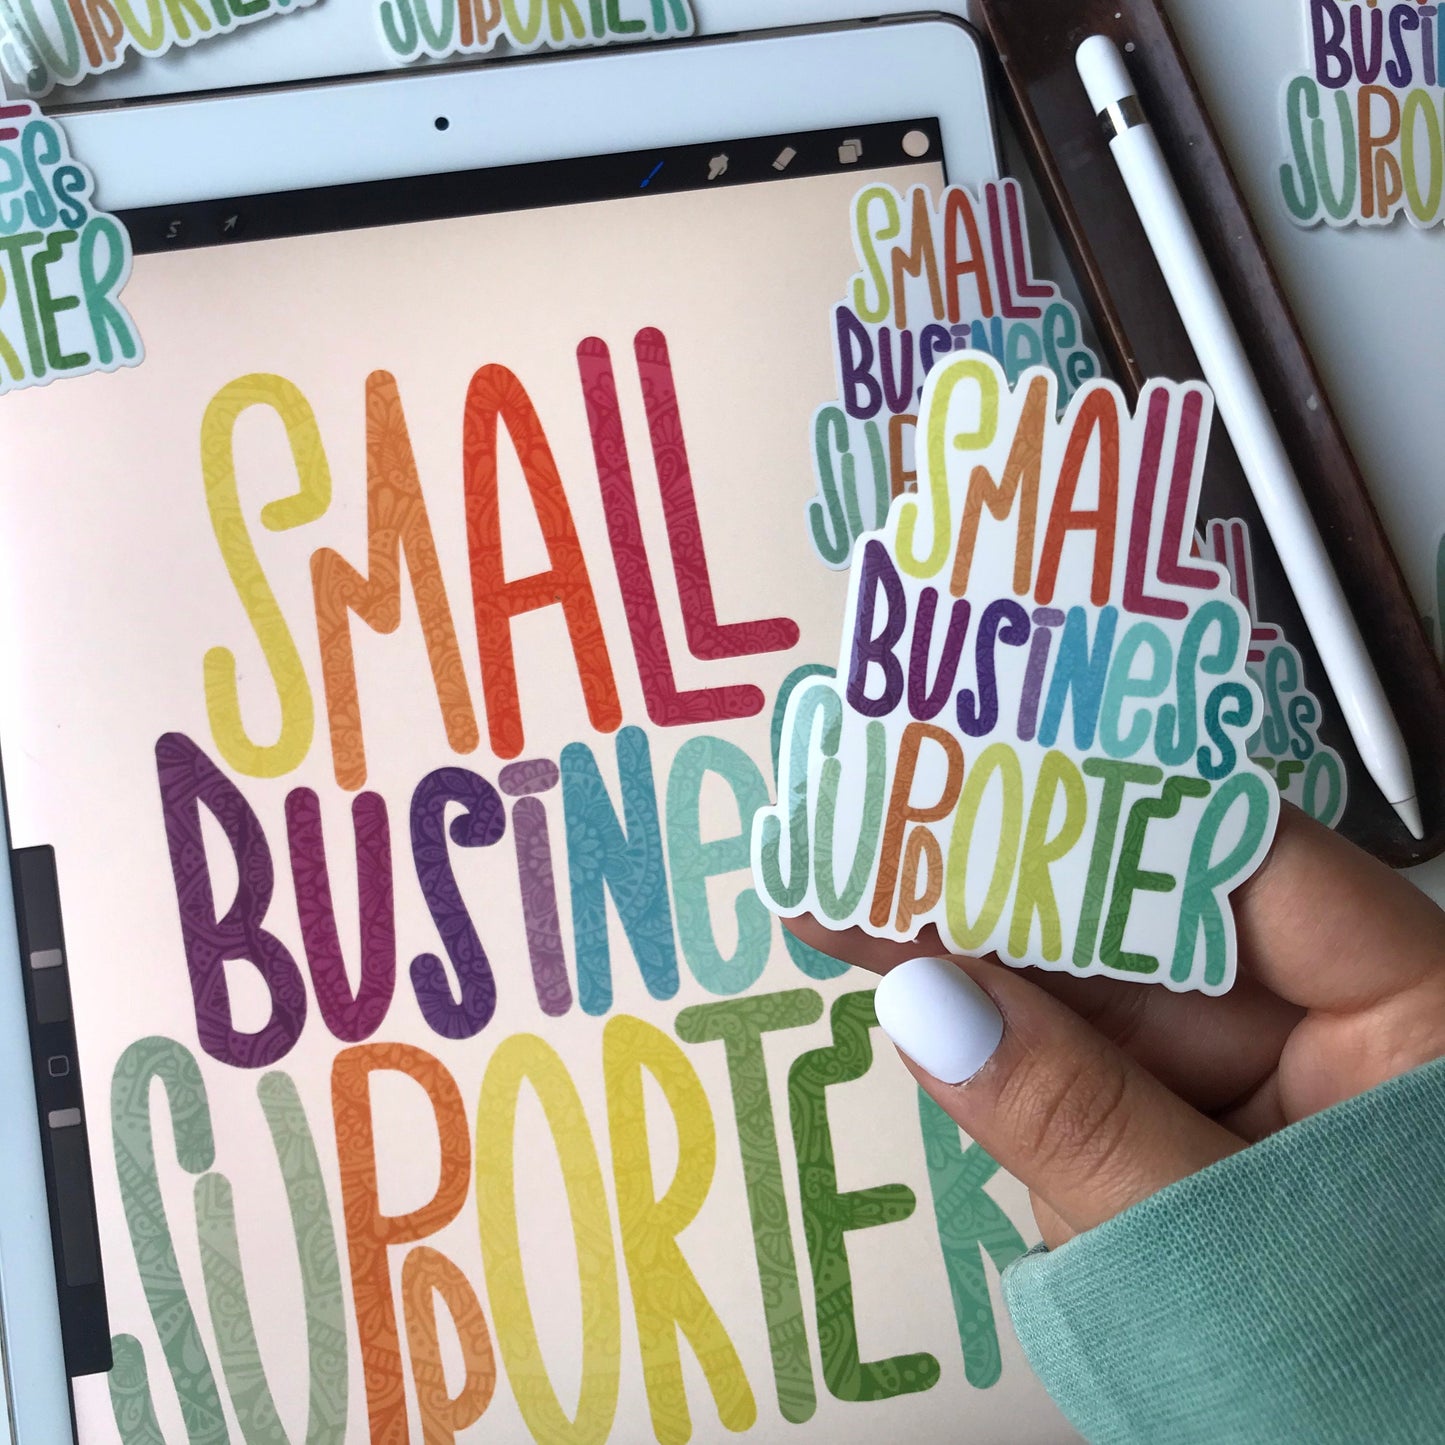 SUPPORTER
SUPPORTER
BUSiN
SUPPO
eSS
RTER
S
SMALL
BUSiNeSS
SUPPORTER
SMALL
BUSiNeSS
SUP
SMALL
BUSiNeS
SUPPORTER